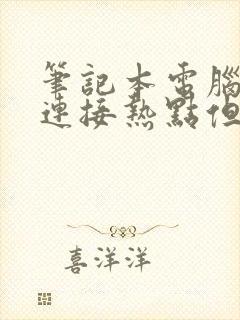 筆記本電腦
連接熱點但
喜洋洋